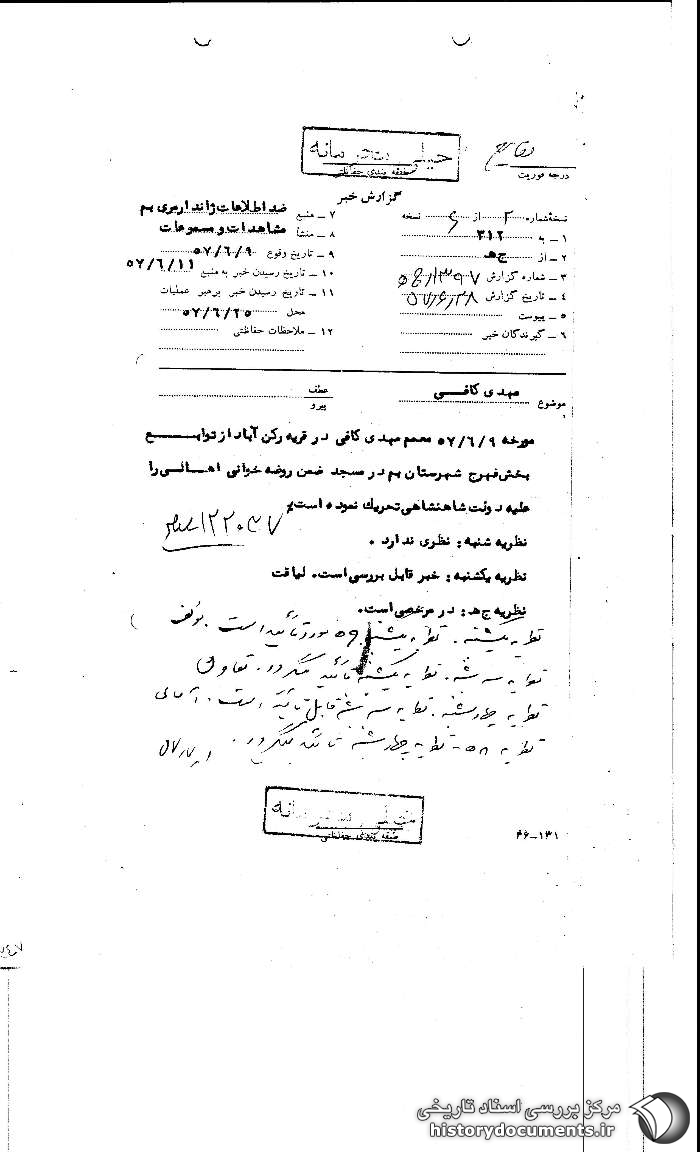 خیلی محرمانه
طبقه بندی حفاظتی
درجه فوریت
گزارش خبر
نسخه شماره ۲ از ۶ نسخه
۱ – به ۳۱۲
۲ – از ج ه
۳ – شماره گزارش
۴ – تاریخ گزارش
۵ – پیوست
۶ – گیرندگان خبر
۷ – منبع ضد اطلاعات ژاندارمری بم
۸ – منشأ مشاهدات و مسموعات
۹ – تاریخ وقوع ۵۷/۶/۹
۱۰ – تاریخ رسیدن خبر به منبع ۵۷/۶/۱۱
۱۱ – تاریخ رسیدن خبر برهبر عملیات
محل ۵۷/۶/۲۵
۱۲ – ملاحظات حفاظتی
موضوع مهدی کافی
عطف
پیرو
مورخه ۵۷/۶/۹ معمم مهدی کافی در قریه رکن آباد از توابع
بخش فهرج شهرستان بم در مسجد ضمن روضه خوانی اهالی را
علیه دولت شاهنشاهی تحریک نموده است
نظریه شنبه : نظری ندارد .
۱۲۲۰۳۷
نظریه یکشنبه : خبر قابل بررسی است . لیاقت
نظریه ج ه : در مرخصی است .
نظریه سه شنبه . نظریه یکشنبه تأیید میگردد .
نظریه چهارشنبه . نظریه سه شنبه قابل تأیید است .
نظریه چهارشنبه تأیید میگردد .
خیلی محرمانه
طبقه بندی حفاظتی
۴۶–۱۳۱
مرکز بررسی اسناد تاریخی
historydocuments.ir